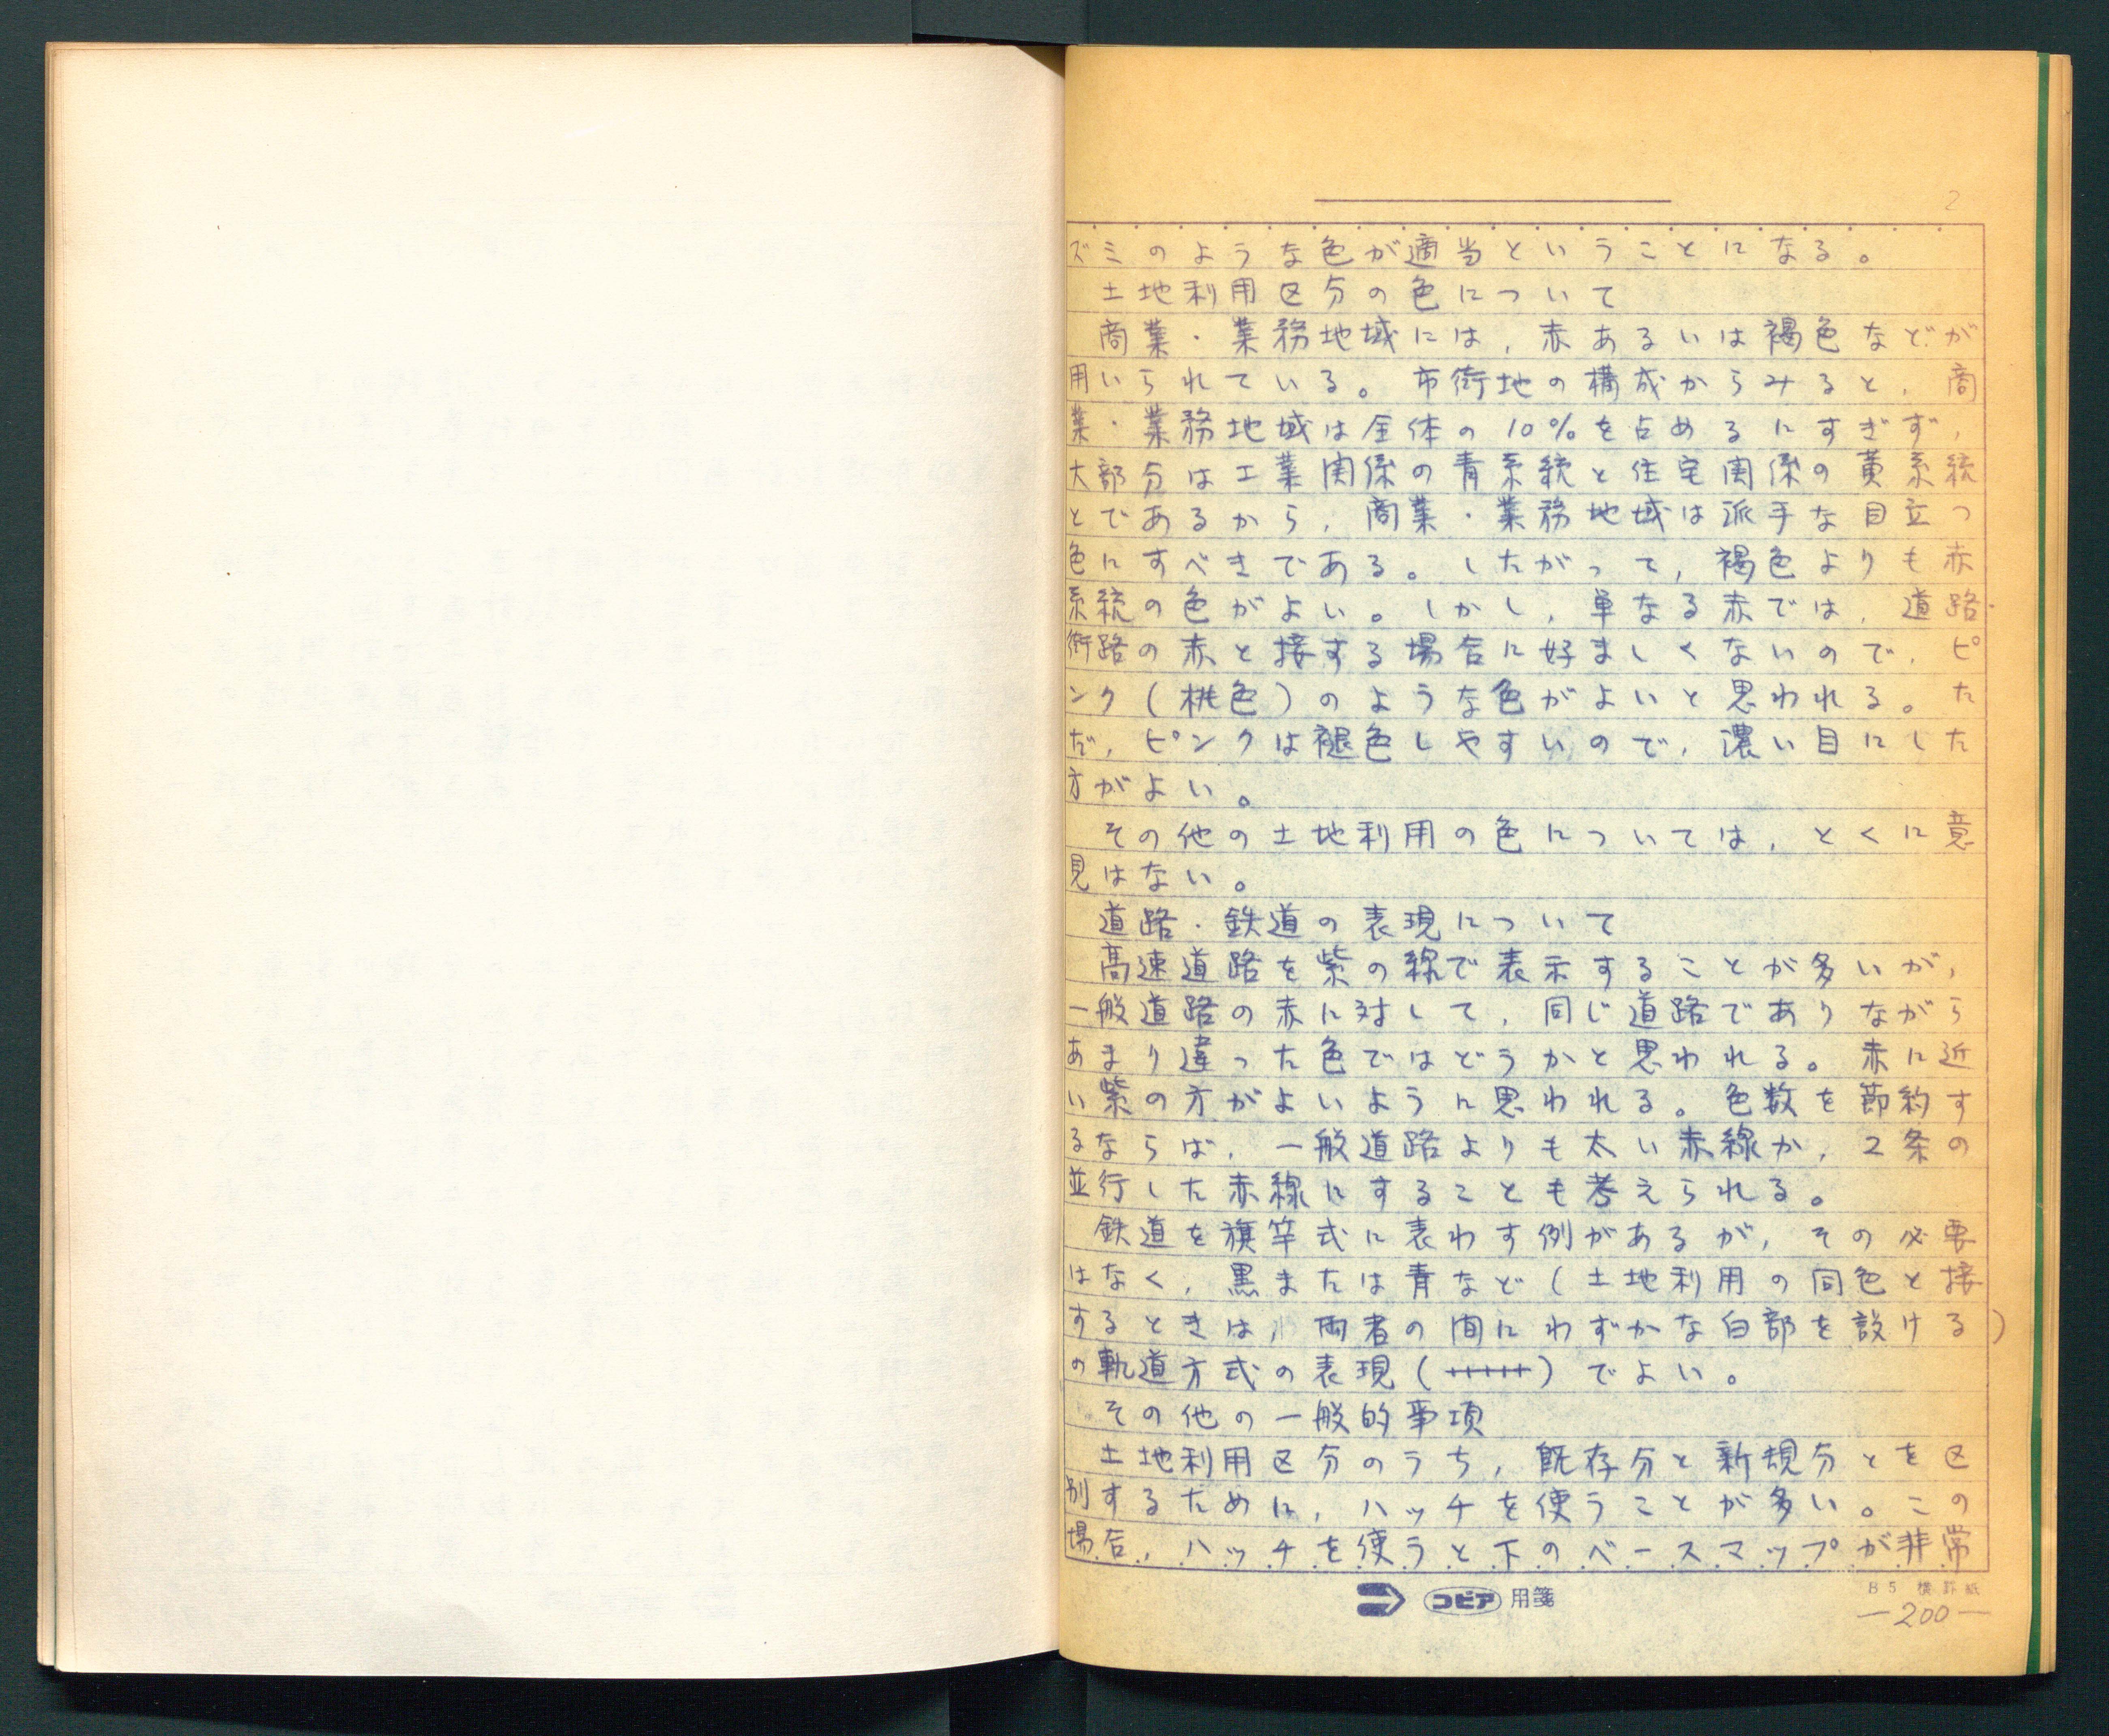 2
ズミのような色が適当ということになる。
土地利用区分の色について
商業・業務地域には，赤あるいは褐色などが
用いられている。市街地の構成からみると，商
業・業務地域は全体の10％を占めるにすぎず，
大部分は工業関係の青系統と住宅関係の黄系統
とであるから，商業・業務地域は派手な目立つ
色にすべきである。したがって，褐色よりも赤
系統の色がよい。しかし，単なる赤では，道路・
街路の赤と接する場合に好ましくないので，ピ
ンク（桃色）のような色がよいと思われる。た
だ，ピンクは褪色しやすいので，濃い目にした
方がよい。
その他の土地利用の色については，とくに意
見はない。
道路・鉄道の表現について
高速道路を紫の線で表示することが多いが，
一般道路の赤に対して，同じ道路でありながら
あまり違った色ではどうかと思われる。赤に近
い紫の方がよいように思われる。色数を節約す
るならば，一般道路よりも太い赤線か，2条の
並行した赤線にすることも考えられる。
鉄道を旗竿式に表わす例があるが，その必要
はなく，黒または青など（土地利用の同色と接
するときは，両者の間にわずかな白部を設ける）
の軌道方式の表現（+++++）でよい。
その他の一般的事項
土地利用区分のうち，既存分と新規分とを区
別するために，ハッチを使うことが多い。この
場合，ハッチを使うと下のベースマップが非常
コピア用箋
B5 横罫紙
—200—